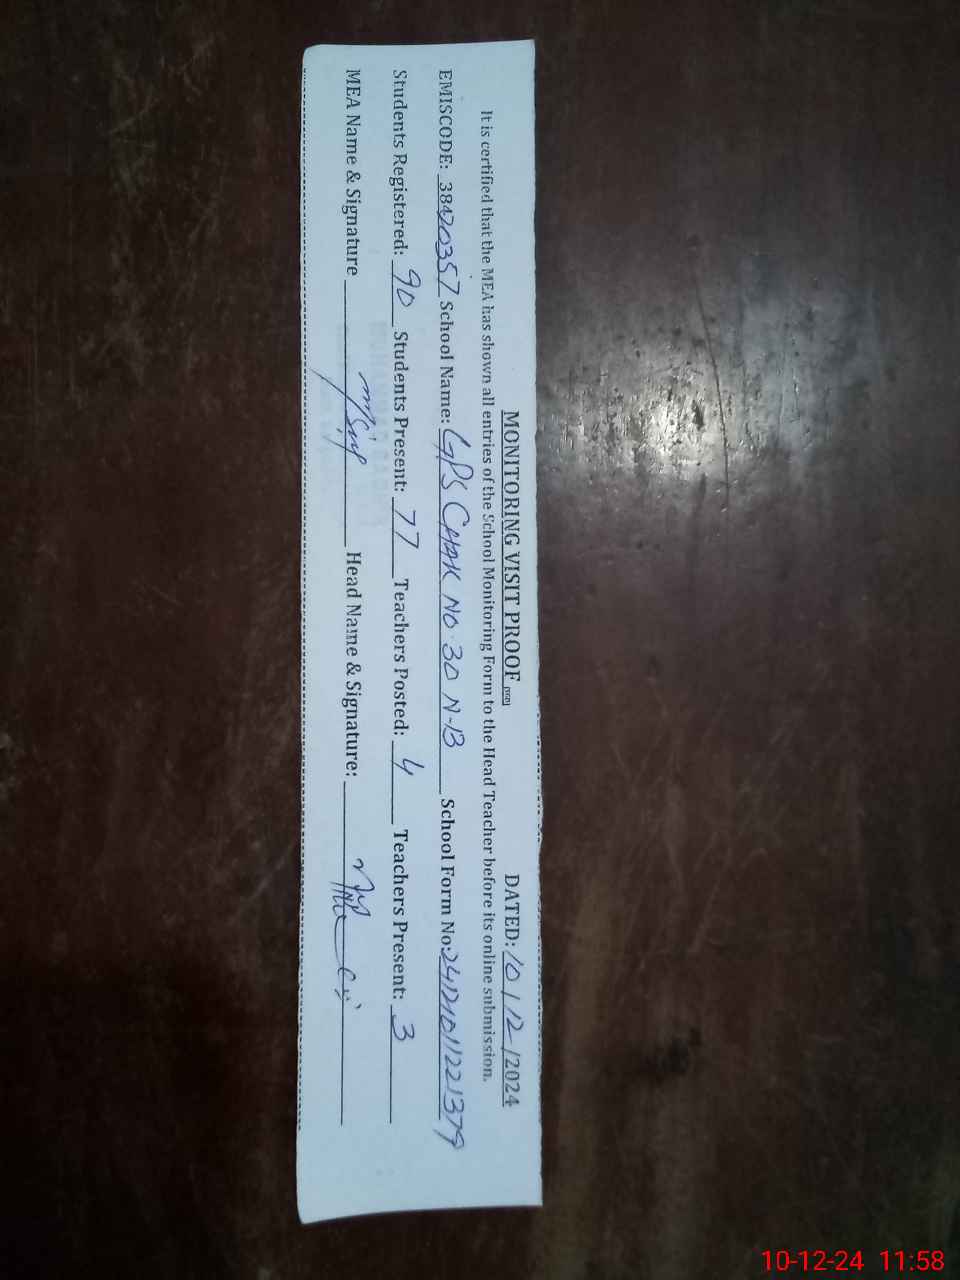 MONITORING VISIT PROOF DATED: 10/12/2024
It is certified that the MEA has shown all entries of the School Monitoring Form to the Head Teacher before its online submission.
EMISCODE: 38420357 School Name: GPS CHAK NO. 30 N-B School Form No: 24121011221379
Students Registered: 90 Students Present: 77 Teachers Posted: 4 Teachers Present: 3
MEA Name & Signature Head Name & Signature:
10-12-24 11:58